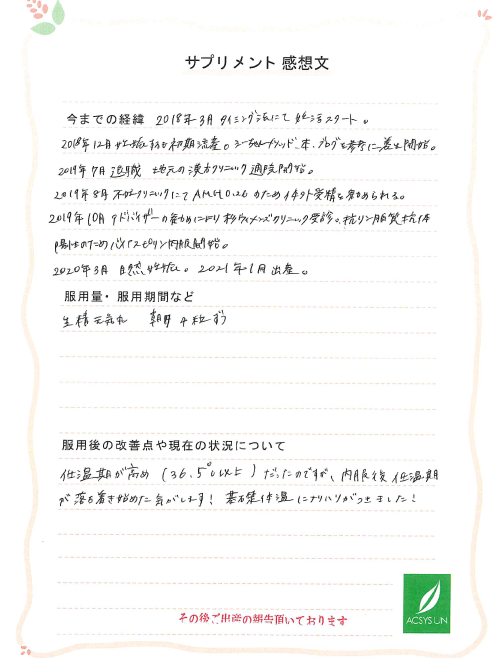 サプリメント 感想文
今までの経緯 2018年3月 タイミング法にて 妊活スタート。
2018年12月 妊娠するも初期流産。シーちゃんメソッド、本、ブログを参考に養生開始。
2019年7月 退職 地元の漢方クリニック通院開始。
2019年8月 不妊クリニックにて AMH0.26 のため体外受精を勧められる。
2019年10月 アドバイザーの勧めにより 杉ウィメンズクリニック受診。抗リン脂質抗体
陽性のためバイアスピリン内服開始。
2020年3月 自然妊娠。2021年1月 出産。
服用量・服用期間など
生精元気丸 朝 4粒ずつ
服用後の改善点や現在の状況について
低温期が高め (36.5℃以上) だったのですが、内服後 低温期
が落ち着き始めた気がします! 基礎体温にメリハリがつきました!
その後ご出産の報告頂いております
ACSYSUN